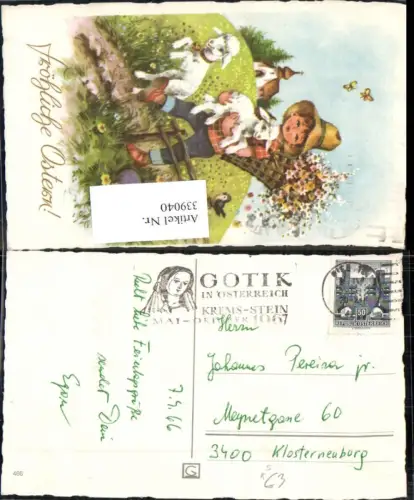 Fröhliche Ostern!
Artikel Nr.
339040
GOTIK
IN ÖSTERREICH
KREMS-STEIN
MAI - OKTOBER 1967
7.4.66
Recht liebe Feiertagsgrüße
sendet Dein
Egon
Herrn
Johannes Pereira jr.
Meynertgasse 60
3400 Klosterneuburg
63
G